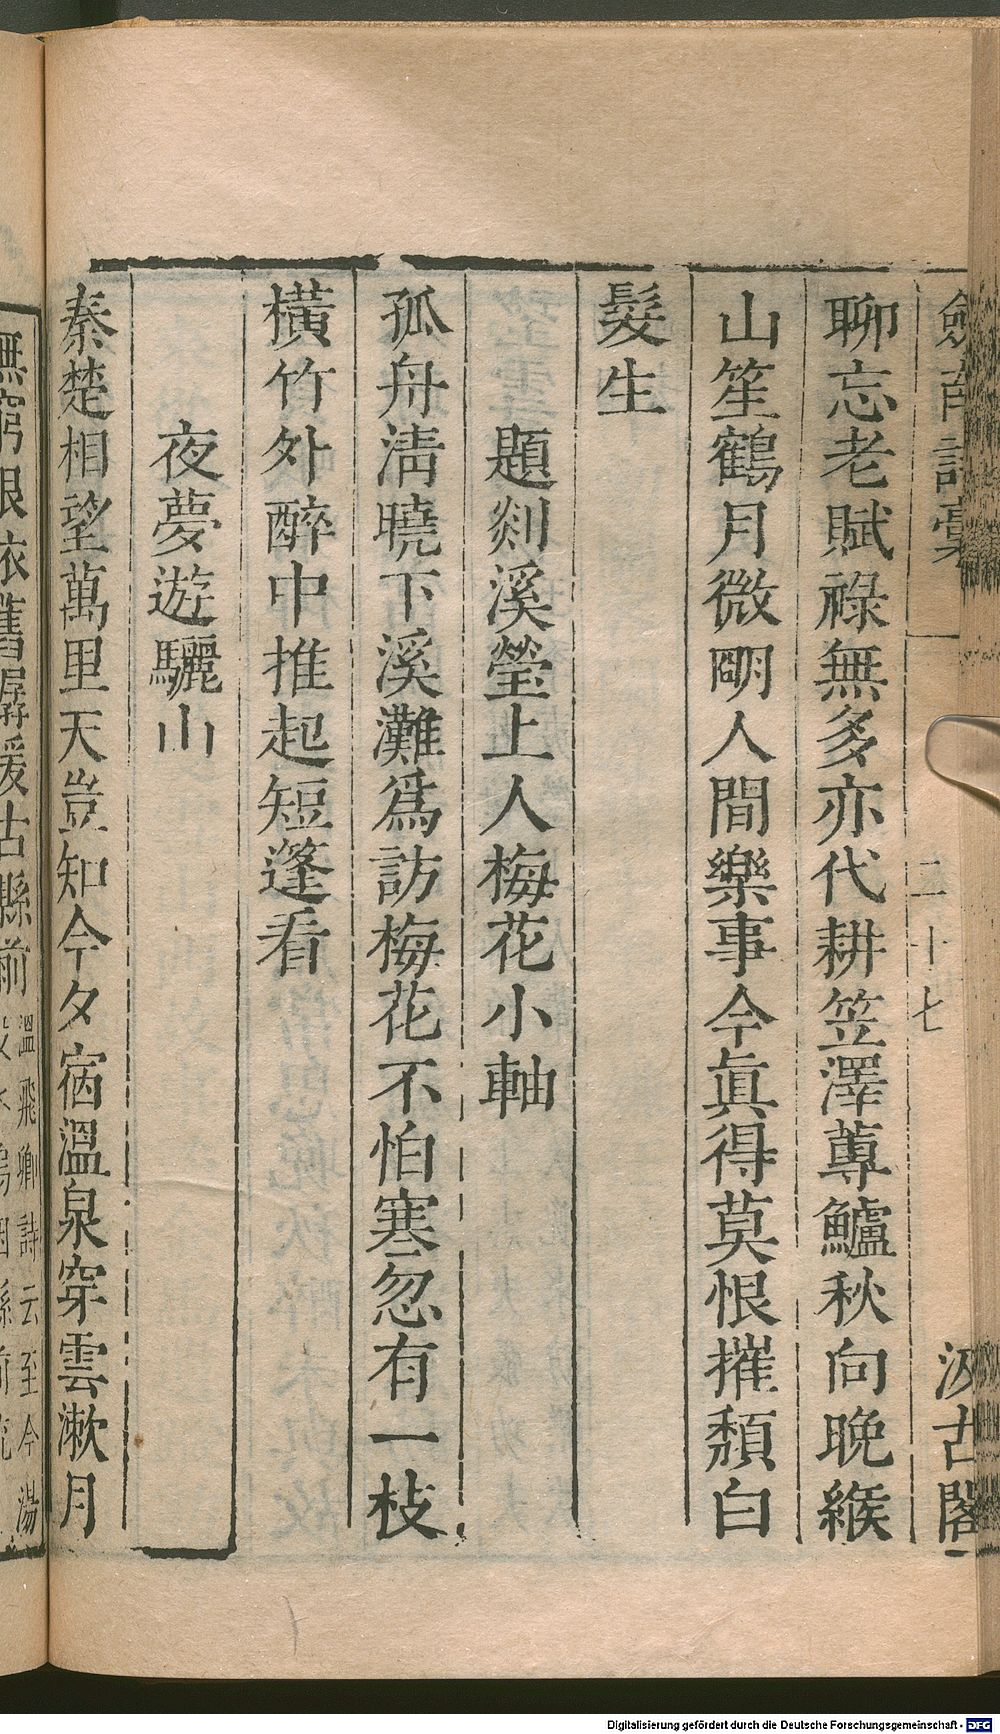 劍南詩稾
二十七
汲古閣
聊忘老賦祿無多亦代耕笠澤蓴鱸秋向晚緱
山笙鶴月微朙人間樂事今眞得莫恨摧頽白
髮生
題剡溪瑩上人梅花小軸
孤舟淸曉下溪灘爲訪梅花不怕寒忽有一枝
橫竹外醉中推起短蓬看
夜夢遊驪山
秦楚相望萬里天豈知今夕宿溫泉穿雲漱月
無窮恨依舊潺湲古縣前
溫飛卿詩云至今湯
Digitalisierung gefördert durch die Deutsche Forschungsgemeinschaft - DFG